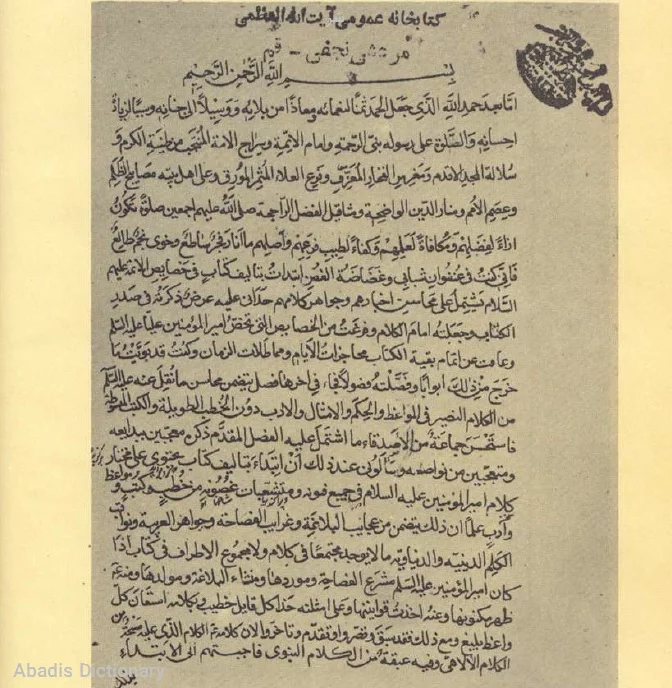 کتابخانه عمومی آیت الله العظمی
مرعشی نجفی - قم
بسم الله الرحمن الرحیم
اما بعد حمد الله الذی جعل الحمد ثمنا لنعمائه ومعاذا من بلائه ووسیلا الی جنانه وسببا لزیادة
احسانه والصلوة علی رسوله نبی الرحمة وامام الائمة وسراج الامة المنتجب من طینة الکرم و
سلالة المجد الاقدم ومغرس الفخار المعرق وفرع العلاء المثمر المورق وعلی اهل بیته مصابیح الظلم
وعصم الامم ومنار الدین الواضحة ومثاقیل الفضل الراجحة صلی الله علیهم اجمعین صلوة تکون
ازاء لفضلهم ومکافاة لعملهم وکفاء لطیب فرعهم واصلهم ما انار فجر ساطع وخوی نجم طالع
فانی کنت فی عنفوان شبابی وغضاضة الغصن ابتدات بتالیف کتاب فی خصایص الائمة علیهم
السلام یشتمل علی محاسن اخبارهم وجواهر کلامهم حدانی علیه غرض ذکرته فی صدر
الکتاب وجعلته امام الکلام وفرغت من الخصایص التی تخص امیر المؤمنین علیا علیه السلم
وعاقت عن اتمام بقیة الکتاب محاجزات الایام ومماطلات الزمان وکنت قد بوبت ما
خرج من ذلک ابوابا وفصلته فصولا فجاء فی اخرها فصل یتضمن محاسن ما نقل عنه علیه السلم
من الکلام القصیر فی المواعظ والحکم والامثال والادب دون الخطب الطویلة والکتب المبسوطة
فاستحسن جماعة من الاصدقاء ما اشتمل علیه الفصل المقدم ذکره معجبین ببدایعه
ومتعجبین من نواصعه وسألونی عند ذلک ان ابتداء بتالیف کتاب یحتوی علی مختار
کلام امیر المؤمنین علیه السلام فی جمیع فنونه ومتشعبات غصونه من خطب وکتب و
وادب علما ان ذلک یتضمن من عجایب البلاغة وغرایب الفصاحة وجواهر العربیة وثواقب
الکلم الدینیة والدنیاویة ما لا یوجد مجتمعا فی کلام ولا مجموع الاطراف فی کتاب اذا
کان امیر المؤمنین علیه السلم مشرع الفصاحة وموردها ومنشاء البلاغة ومولدها ومنه ع
ظهر مکنونها وعنه اخذت قوانینها وعلی امثلته حذا کل قایل خطیب وبکلامه استعان کل
واعظ بلیغ ومع ذلک فقد سبق وقصروا وتقدم وتاخروا لان کلامه ع الکلام الذی علیه مسحة من
الکلام الالاهی وفیه عبقة من الکلام النبوی فاجبتهم الی الابتداء
بذلک
Abadis Dictionary